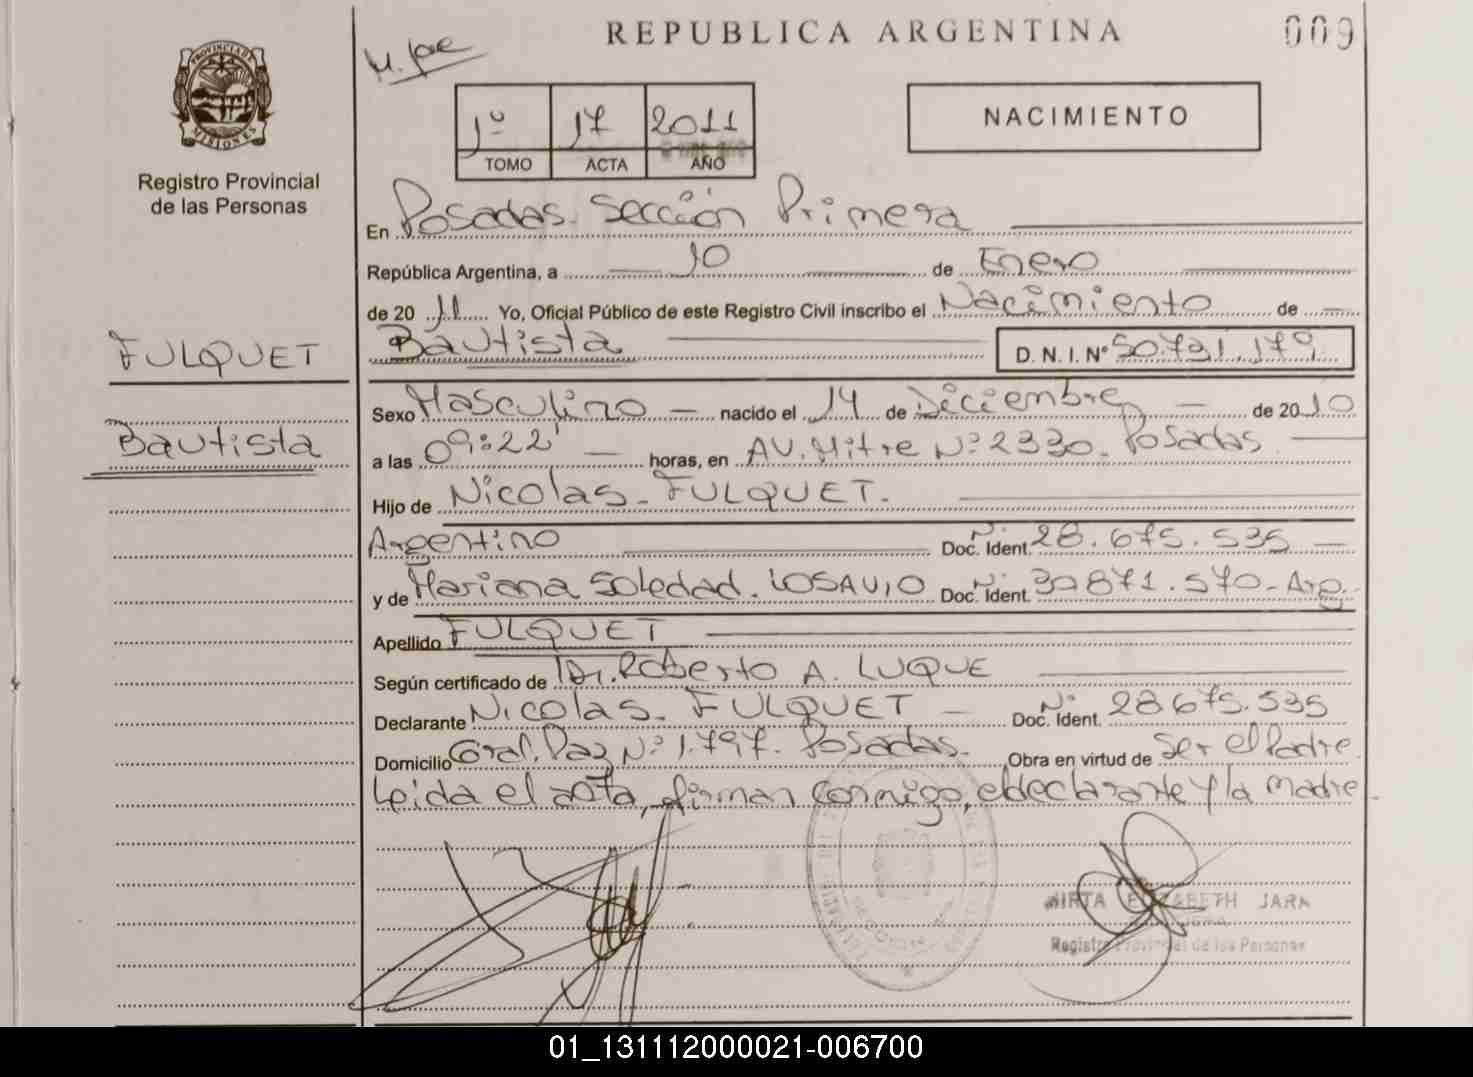 REPUBLICA ARGENTINA
009
M. Jose
PROVINCIA DE
MISIONES
Registro Provincial
de las Personas
1º 17 2011
TOMO ACTA AÑO
NACIMIENTO
En Posadas. Sección Primera
República Argentina, a 10 de Enero
de 20 11 Yo, Oficial Público de este Registro Civil inscribo el Nacimiento de
Bautista D. N. I. Nº 50.731.179
FULQUET
Sexo Masculino nacido el 14 de Diciembre de 2010
Bautista
a las 09:22' horas, en AV. Mitre Nº 2330. Posadas
Hijo de Nicolas. FULQUET.
Argentino Doc. Ident. Nº 28.675.535
y de Mariana Soledad. LOSAVIO Doc. Ident. Nº 30871.570 - Arg.
Apellido FULQUET
Según certificado de Dr. Roberto A. LUQUE
Declarante Nicolas. FULQUET Doc. Ident. Nº 28675.535
Domicilio Gral. Paz Nº 1.797. Posadas. Obra en virtud de Ser el Padre
Leida el acta, firman conmigo, el declarante y la madre
MIRTA ELIZABETH JARA
Registro Provincial de las Personas
01_131112000021-006700